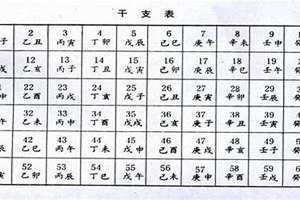 干支表
2 3 4 5 6 7 8 9
子 乙丑 丙寅 丁卯 戊辰 己巳 庚午 辛未 壬申
12 13 14 15 16 17 18 19
戌 乙亥 丙子 丁丑 戊寅 己卯 庚辰 辛巳 壬午
22 23 24 25 26 27 28 29
申 乙酉 丙戌 丁亥 戊子 己丑 庚寅 辛卯 壬辰
32 33 34 35 36 37 38 39
午 乙未 丙申 丁酉 戊戌 己亥 庚子 辛丑 壬寅
42 43 44 45 46 47 48 49
辰 乙巳 丙午 丁未 戊申 己酉 庚戌 辛亥 壬子
52 53 54 55 56 57 58 59
寅 乙卯 丙辰 丁巳 戊午 己未 庚申 辛酉 壬戌